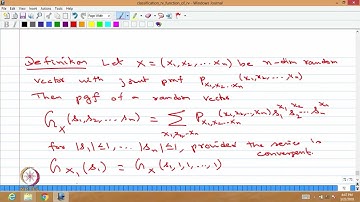 classification_rv_function_of_rv - Windows Journal
Definition Let X = (x₁, x₂, ... xₙ) be n-dim random
vector with joint pmf P_{x₁,x₂,...xₙ}(x₁, x₂, ... xₙ)
Then pgf of a random vector
G_X(s₁, s₂, ... sₙ) = Σ_{x₁,x₂,..xₙ} P_{x₁,x₂,...xₙ}(x₁, x₂, ..., xₙ) s₁^{x₁} s₂^{x₂} ... sₙ^{xₙ}
for |s₁| ≤ 1, ... |sₙ| ≤ 1, provided the series is
convergent.
G_{X₁}(s₁) = G_X(s₁, 1, 1, ..., 1)